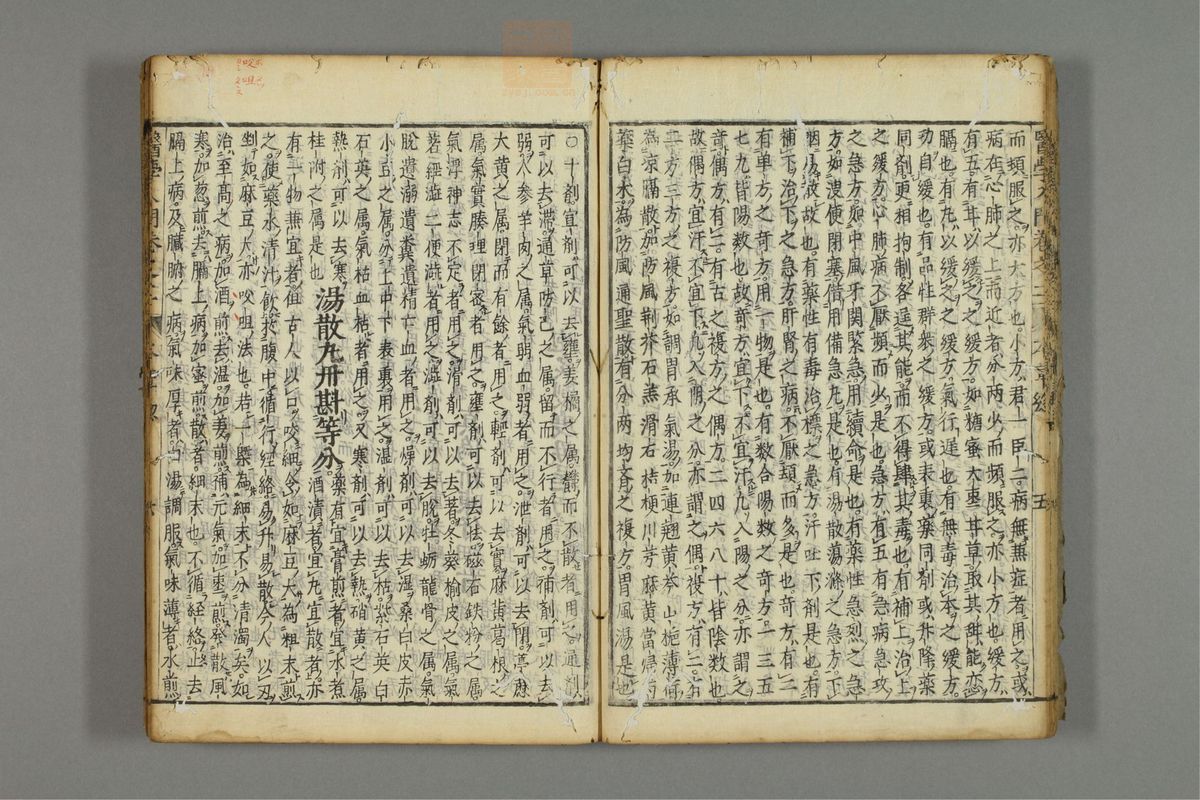 而頻服之亦大方也小方君一臣二病無兼症者用之或
病在心肺之上而近者分兩少而頻服之亦小方也緩方
有五有甘以緩之之緩方如糖蜜大棗甘草取其甜能恋
膈也有丸以緩之之緩方氣行遅也有無毒治本之緩方
功自緩也有品性群衆之緩方或表裏藥同剤或升降藥
同剤更相拘制各逞其能而不得肆其毒也有補上治上
之緩方心肺病不厭頻而少是也急方有五有急病急攻
之急方如中風牙関緊急用續命是也有藥性急烈之急
方如洩便閉塞借用備急丸是也有湯散蕩滌之急方下
咽易散故也有藥性有毒治標之急方汗吐下剤是也有
補下治下之急方肝腎之病不厭頻而多是也奇方有二
有单方之奇方用一物是也有数合陽数之奇方一三五
七九皆陽数也故奇方宜下不宜汗凢入陽之分亦謂之
奇偶方有二有古之複方之偶方二四六八十皆陰数也
故偶方宜汗不宜下凢入陰之分亦謂之偶複方有二有
二方三方之複方如調胃承氣湯加連翹黄芩山梔薄荷
為凉膈散加防風荆芥石羔滑石桔梗川芎麻黄當帰芍
藥白术為防風通聖散有分两均齊之複方胃風湯是也
○十剤宣剤可以去壅姜橘之属欝而不散者用之通剤
可以去滞通草防己之属留而不行者用之補剤可以去
弱人參羊肉之属氣弱血弱者用之泄剤可以去閉葶藶
大黄之属閉而有餘者用之輕剤可以去實麻黄葛根之
属氣實腠理閉密者用之重剤可以去怯磁石鉄粉之属
氣浮神志不定者用之滑剤可以去著冬葵榆皮之属氣
著經澁二便澁者用之澁剤可以去脱牡蛎龍骨之属氣
脱遺溺遺糞遺精亡血者用之燥剤可以去湿桑白皮赤
小豆之属分上中下表裏用之湿剤可以去枯紫石英白
石英之属氣枯血枯者用之又寒剤可以去熱硝黄之属
熱剤可以去寒桂附之属是也
湯散丸丹斟等分
藥有宜膏煎者宜水煮者宜酒漬者宜丸宜散者亦
有一物兼宜者但古人以口咬細令如麻豆大為粗末煎
之使藥水清汁飲於腹中循行經絡易升易散今人以刀
剉如麻豆大亦㕮咀法也若一槩為細末不分清濁矣如
治至高之病加酒煎去湿加姜煎補元氣加棗煎發散風
寒加葱煎去膈上病加蜜煎散者細末也不循經絡止去
膈上病及臓腑之病氣味厚者白湯調服氣味薄者水煎